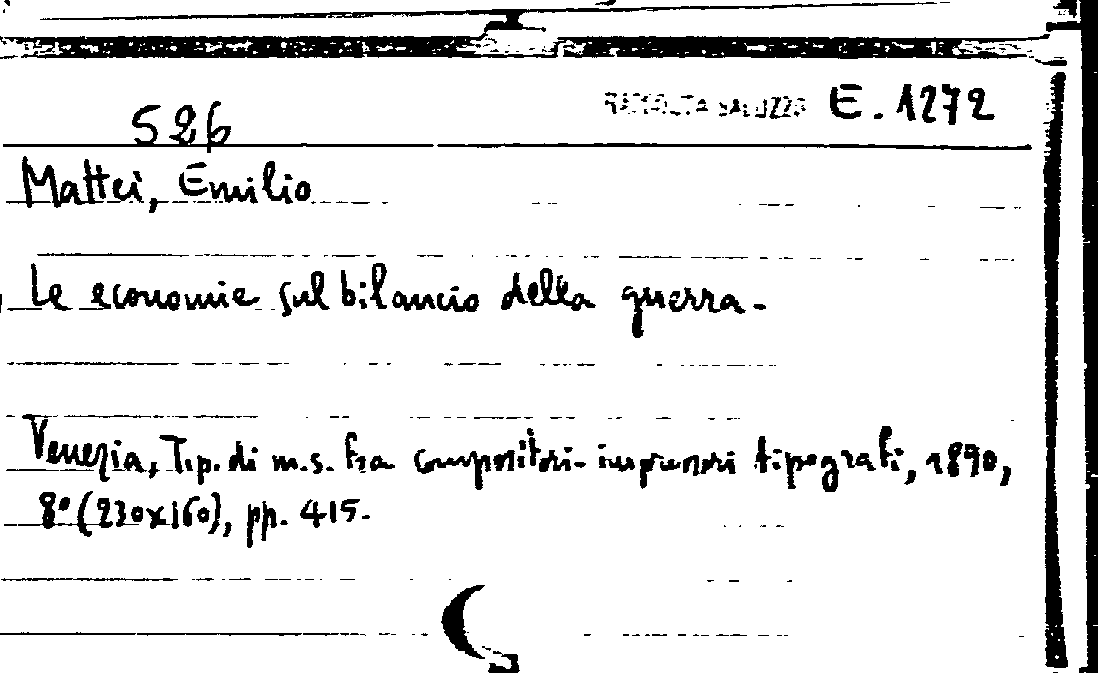 RACCOLTA SALUZZO E. 1272
526
Mattei, Emilio
Le economie sul bilancio della guerra.
Venezia, Tip. di m.s. fra compositori-impressori tipografi, 1890,
8° (230x160), pp. 415.